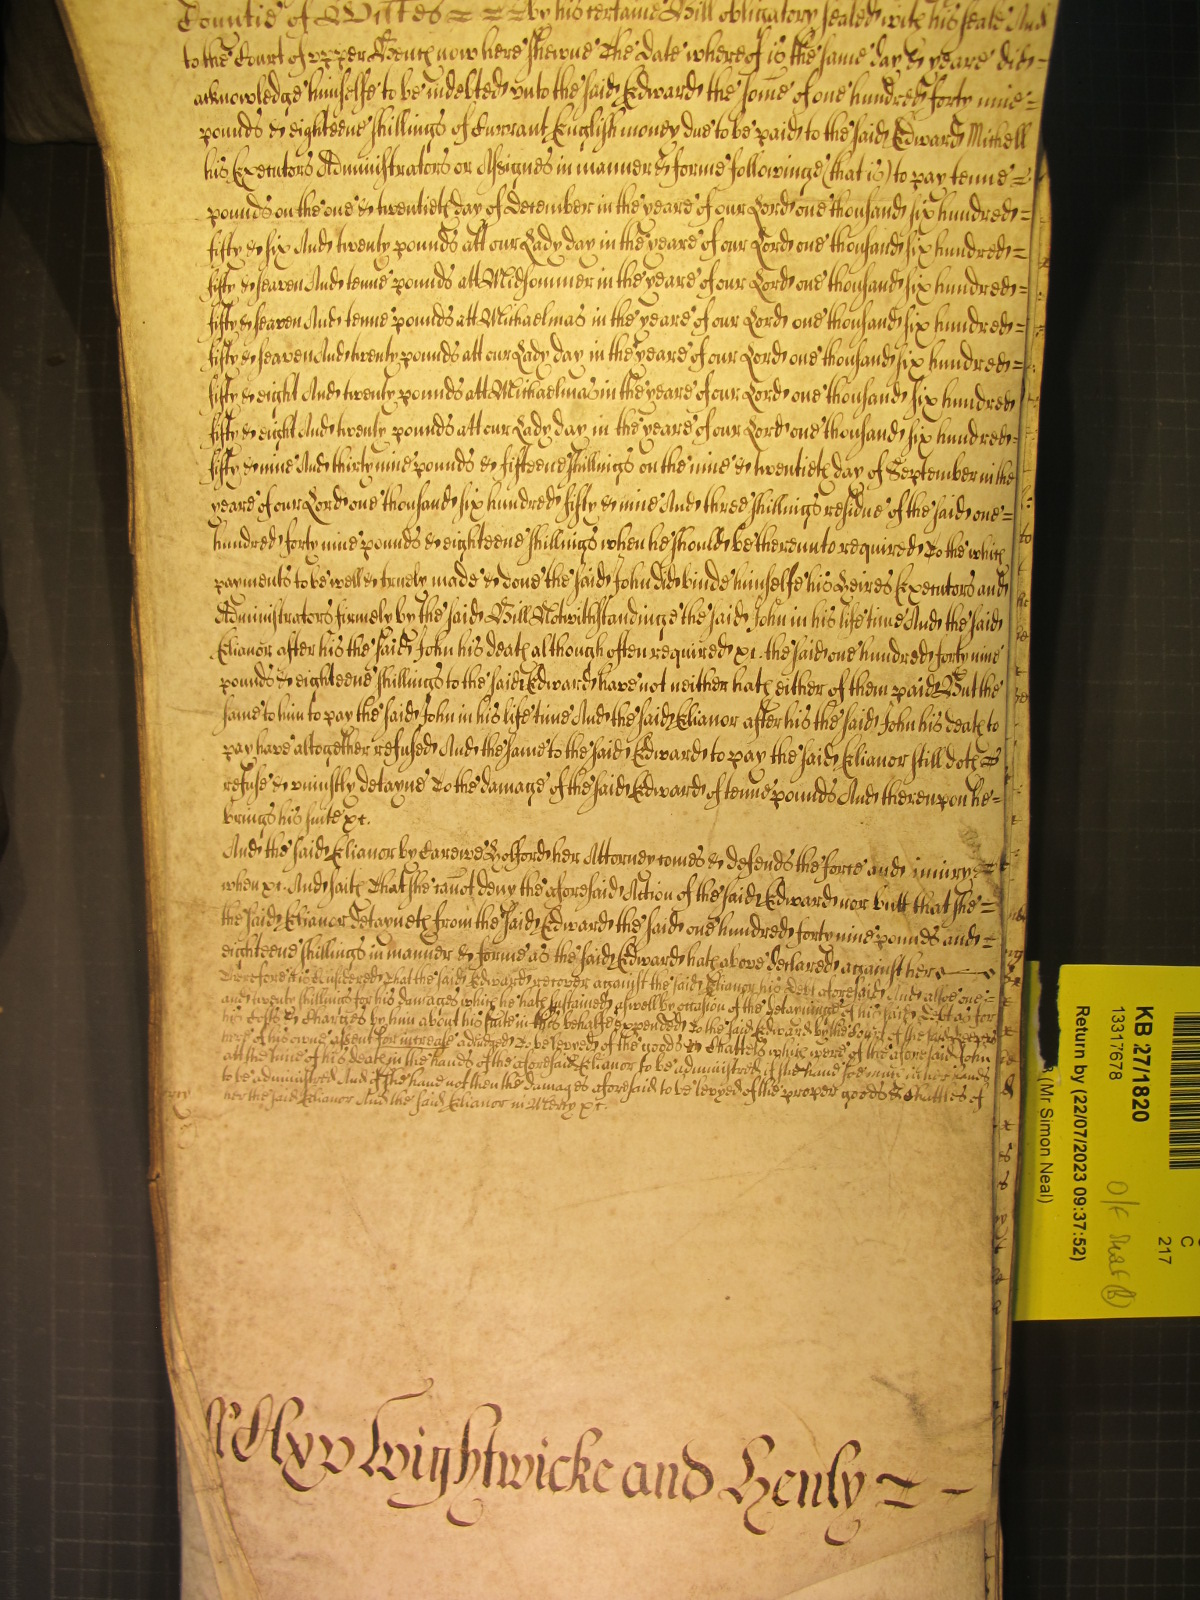 Countie of Wiltes by his certaine Bill obligatory sealed with his seale And
to the Court of upper Bench now here shewne The date whereof is the same day & yeare did
acknowledge himselfe to be indebted unto the said Edward the some of one hundred forty nine
pounds & eighteene shillings of Currant English money due to be paid to the said Edward Mitchell
his Executors Administrators or Assignes in manner & forme followinge (that is) to pay tenne
pounds on the one & twentieth day of December in the yeare of our Lord one thousand six hundred
fifty & six And twenty pounds att our Lady day in the yeare of our Lord one thousand six hundred
fifty & seaven And tenne pounds att Midsommer in the yeare of our Lord one thousand six hundred
fifty & seaven And tenne pounds att Michaelmas in the yeare of our Lord one thousand six hundred
fifty & seaven And twenty pounds att our Lady day in the yeare of our Lord one thousand six hundred
fifty & eight And twenty pounds att Michaelmas in the yeare of our Lord one thousand six hundred
fifty & eight And twenty pounds att our Lady day in the yeare of our Lord one thousand six hundred
fifty & nine And thirty nine pounds & fifteene shillings on the nine & twentieth day of September in the
yeare of our Lord one thousand six hundred fifty & nine And three shillings residue of the said one
hundred forty nine pounds & eighteene shillings when he should be thereunto required To the which
payments to be well & truely made & done the said John did binde himselfe his Heires Executors and
Administrators firmely by the said Bill Notwithstandinge the said John in his life time And the said
Elianor after his the said John his death although often required xc. the said one hundred forty nine
pounds & eighteene shillings to the said Edward have not neither hath either of them paid But the
same to him to pay the said John in his life time And the said Elianor after his the said John his death to
pay have altogether refused And the same to the said Edward to pay the said Elianor still doth
refuse & uniustly detayne To the damage of the said Edward of tenne pounds And thereupon he
brings his suite xc.
And the said Elianor by Carewe Holford her Attorney comes & defends the force and iniury
when xc. And saith That she cannot deny the aforesaid Action of the said Edward nor butt that she
the said Elianor detayneth from the said Edward the said one hundred forty nine pounds and
eighteene shillings in manner & forme as the said Edward hath above declared against her
Therefore it is Considered That the said Edward recover against the said Elianor his Debt aforesaid And alsoe one
and twenty shillings for his damages which he hath sustained aswell by occasion of the detayninge of his said Debt as for
his Costs & Charges by him about his suite in this behalfe expended To the said Edward by the Court of the said
here of his owne assent for increase adiudged To be levyed of the goods & Chattels which were of the aforesaid John
att the time of his death in the hands of the aforesaid Elianor to be administred if she have soe much in her hands
to be administred And if she have not then the damages aforesaid to be levyed of the proper goods & Chattles of
her the said Elianor And the said Elianor in Mercy xc.
Wightwicke and Henly
KB 27/1820
13317678
Return by (22/07/2023 09:37:52)
(Mr Simon Neal)
C
217